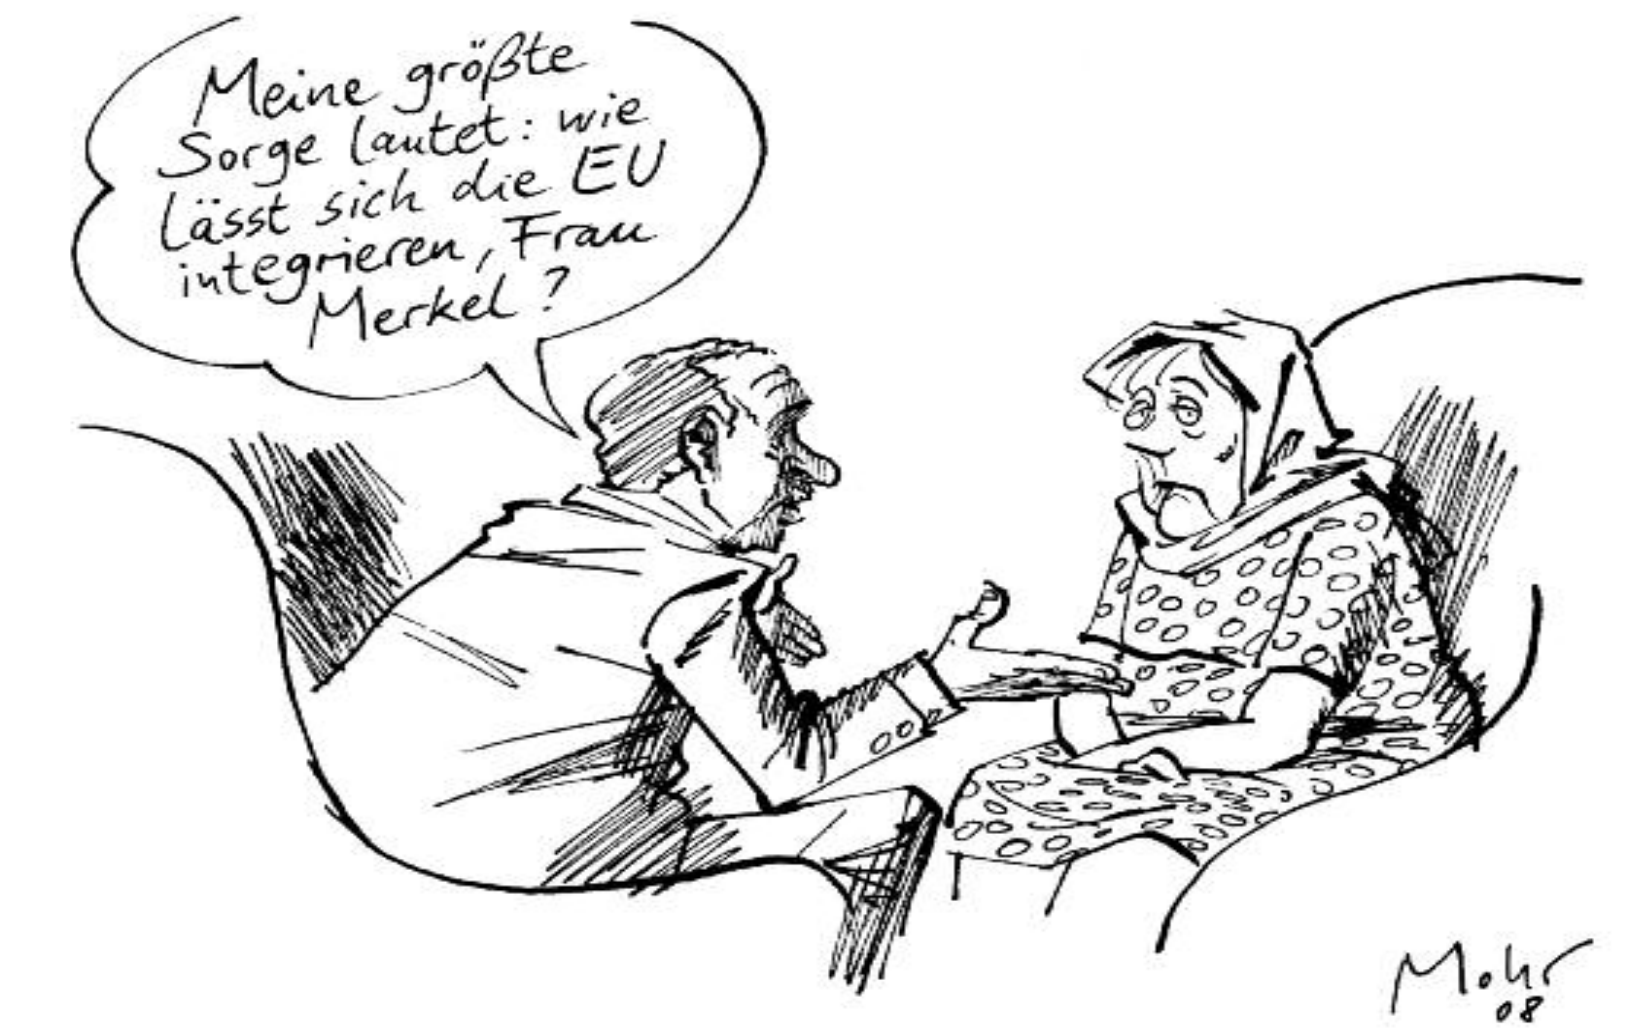 Meine größte
Sorge lautet: wie
lässt sich die EU
integrieren, Frau
Merkel?
Mohr
08